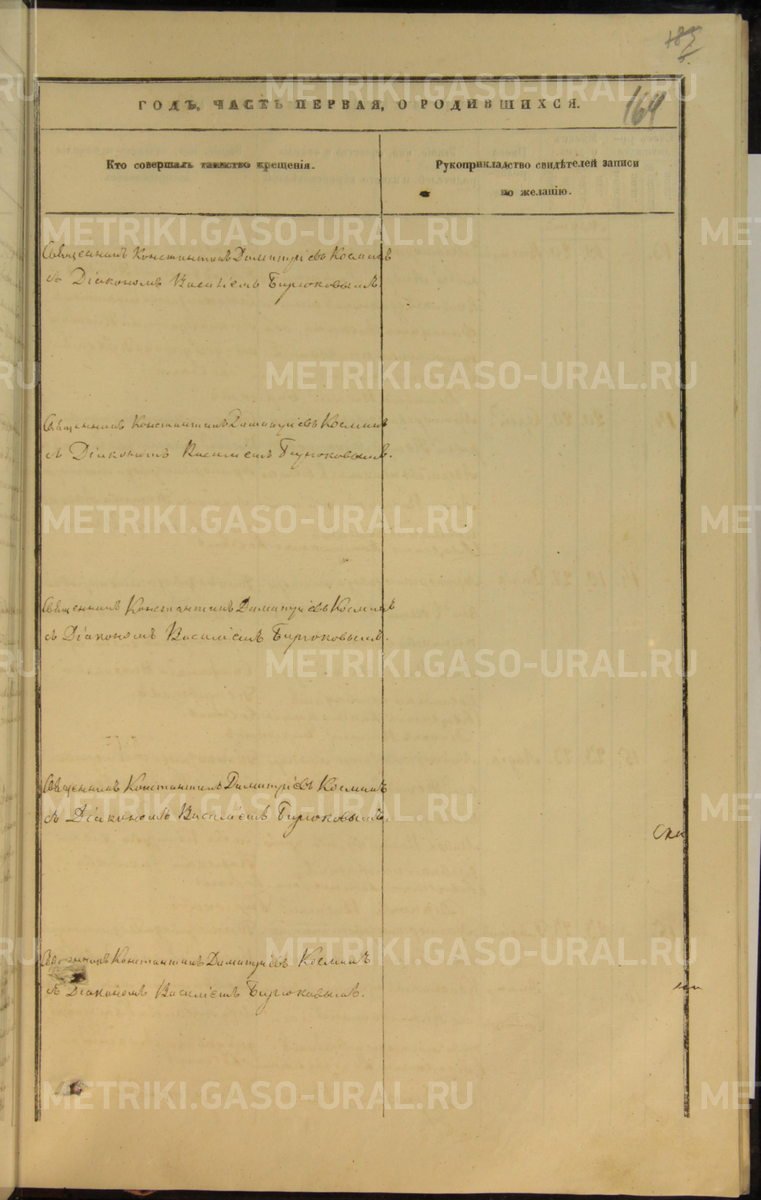 164
ГОДЪ, ЧАСТЬ ПЕРВАЯ, О РОДИВШИХСЯ.
Кто совершалъ таинство крещенія.
Рукоприкладство свидѣтелей записи
по желанію.
Священникъ Константинъ Димитріевъ Косминъ
съ Діакономъ Василіемъ Бирюковымъ.
Священникъ Константинъ Димитріевъ Косминъ
съ Діакономъ Василіемъ Бирюковымъ.
Священникъ Константинъ Димитріевъ Косминъ
съ Діакономъ Василіемъ Бирюковымъ.
Священникъ Константинъ Димитріевъ Косминъ
съ Діакономъ Василіемъ Бирюковымъ.
Священникъ Константинъ Димитріевъ Косминъ
съ Діакономъ Василіемъ Бирюковымъ.
METRIKI.GASO-URAL.RU